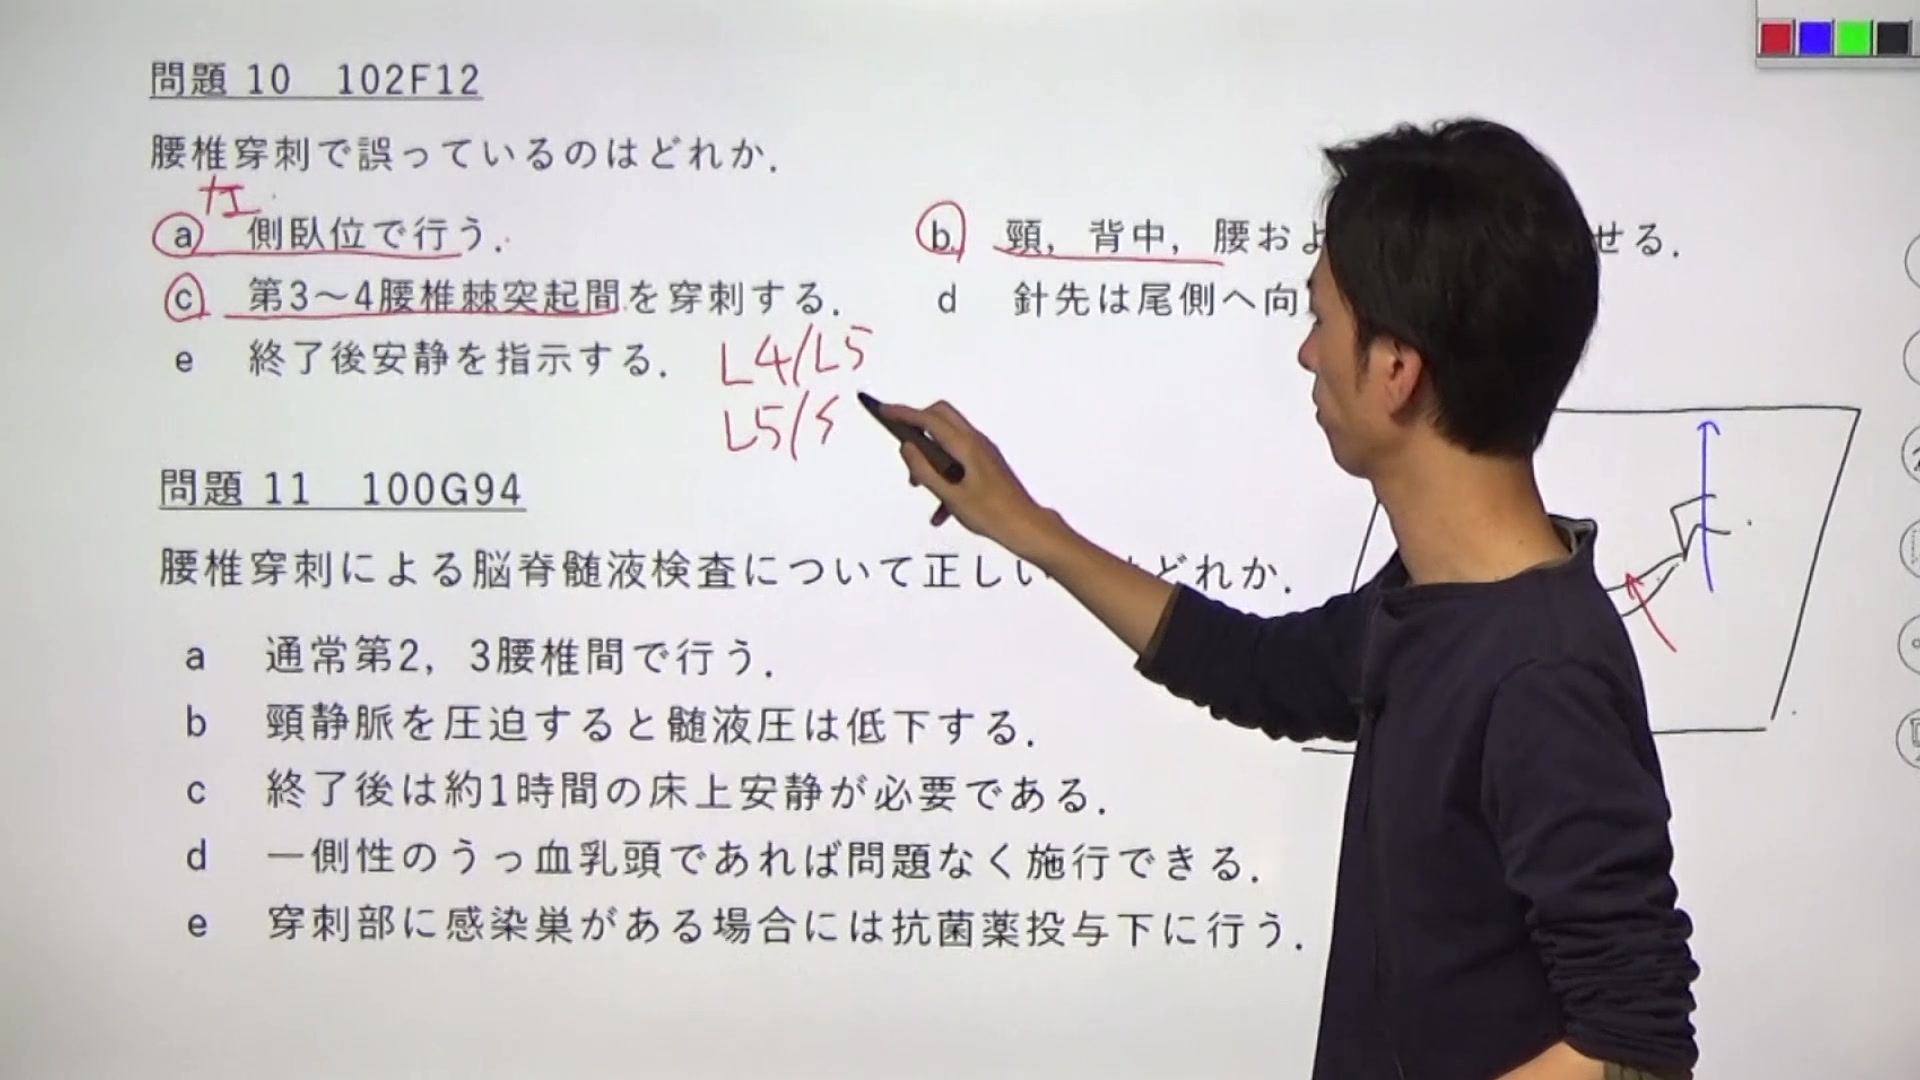 問題 10 102F12
腰椎穿刺で誤っているのはどれか.
左
a 側臥位で行う.
b 頸, 背中, 腰およ せる.
c 第3〜4腰椎棘突起間を穿刺する.
d 針先は尾側へ向
e 終了後安静を指示する.
L4/L5
L5/S
問題 11 100G94
腰椎穿刺による脳脊髄液検査について正しい どれか.
a 通常第2, 3腰椎間で行う.
b 頸静脈を圧迫すると髄液圧は低下する.
c 終了後は約1時間の床上安静が必要である.
d 一側性のうっ血乳頭であれば問題なく施行できる.
e 穿刺部に感染巣がある場合には抗菌薬投与下に行う.